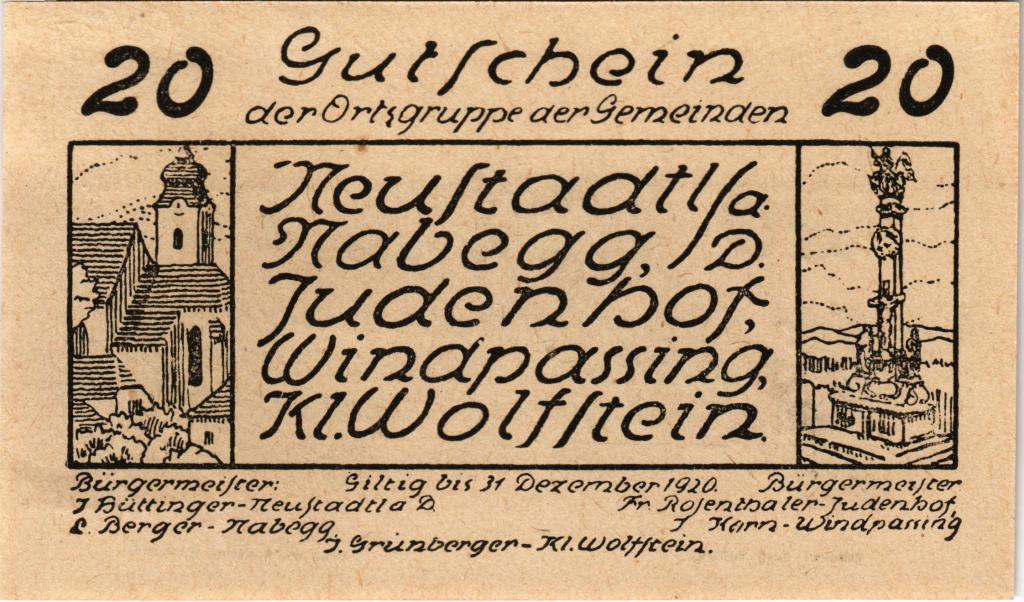 20 Gutschein 20
der Ortsgruppe der Gemeinden
Neustadtl/a.
Nabegg, /D.
Judenhof,
Windpassing,
Kl. Wolfstein.
Bürgermeister: Giltig bis 31 Dezember 1920. Bürgermeister
J Büttinger-Neustadtl a D Fr. Rosenthaler-Judenhof,
L. Berger-Nabegg J Korn-Windpassing
J. Grünberger-Kl. Wolfstein.